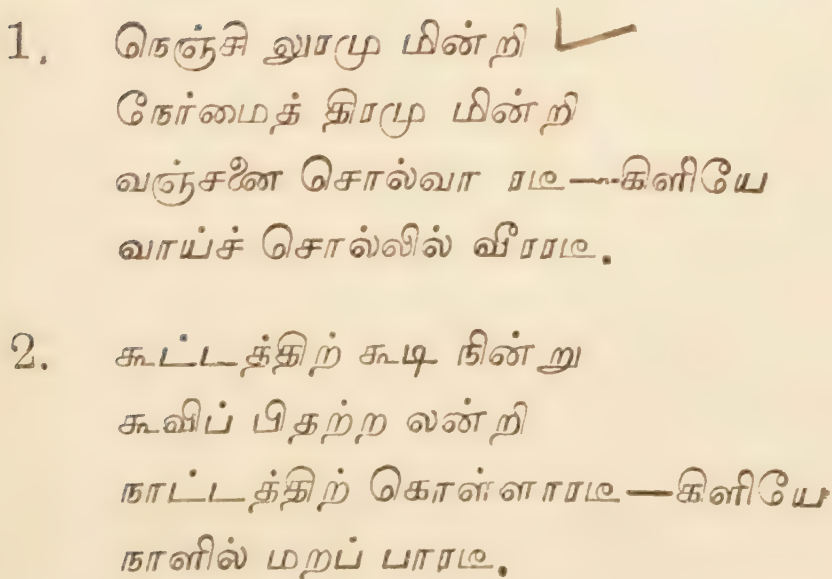 1. நெஞ்சி லுரமு மின்றி
நேர்மைத் திரமு மின்றி
வஞ்சனை சொல்வா ரடீ—கிளியே
வாய்ச் சொல்லில் வீரரடீ.
2. கூட்டத்திற் கூடி நின்று
கூவிப் பிதற்ற லன்றி
நாட்டத்திற் கொள்ளாரடீ—கிளியே
நாளில் மறப் பாரடீ.